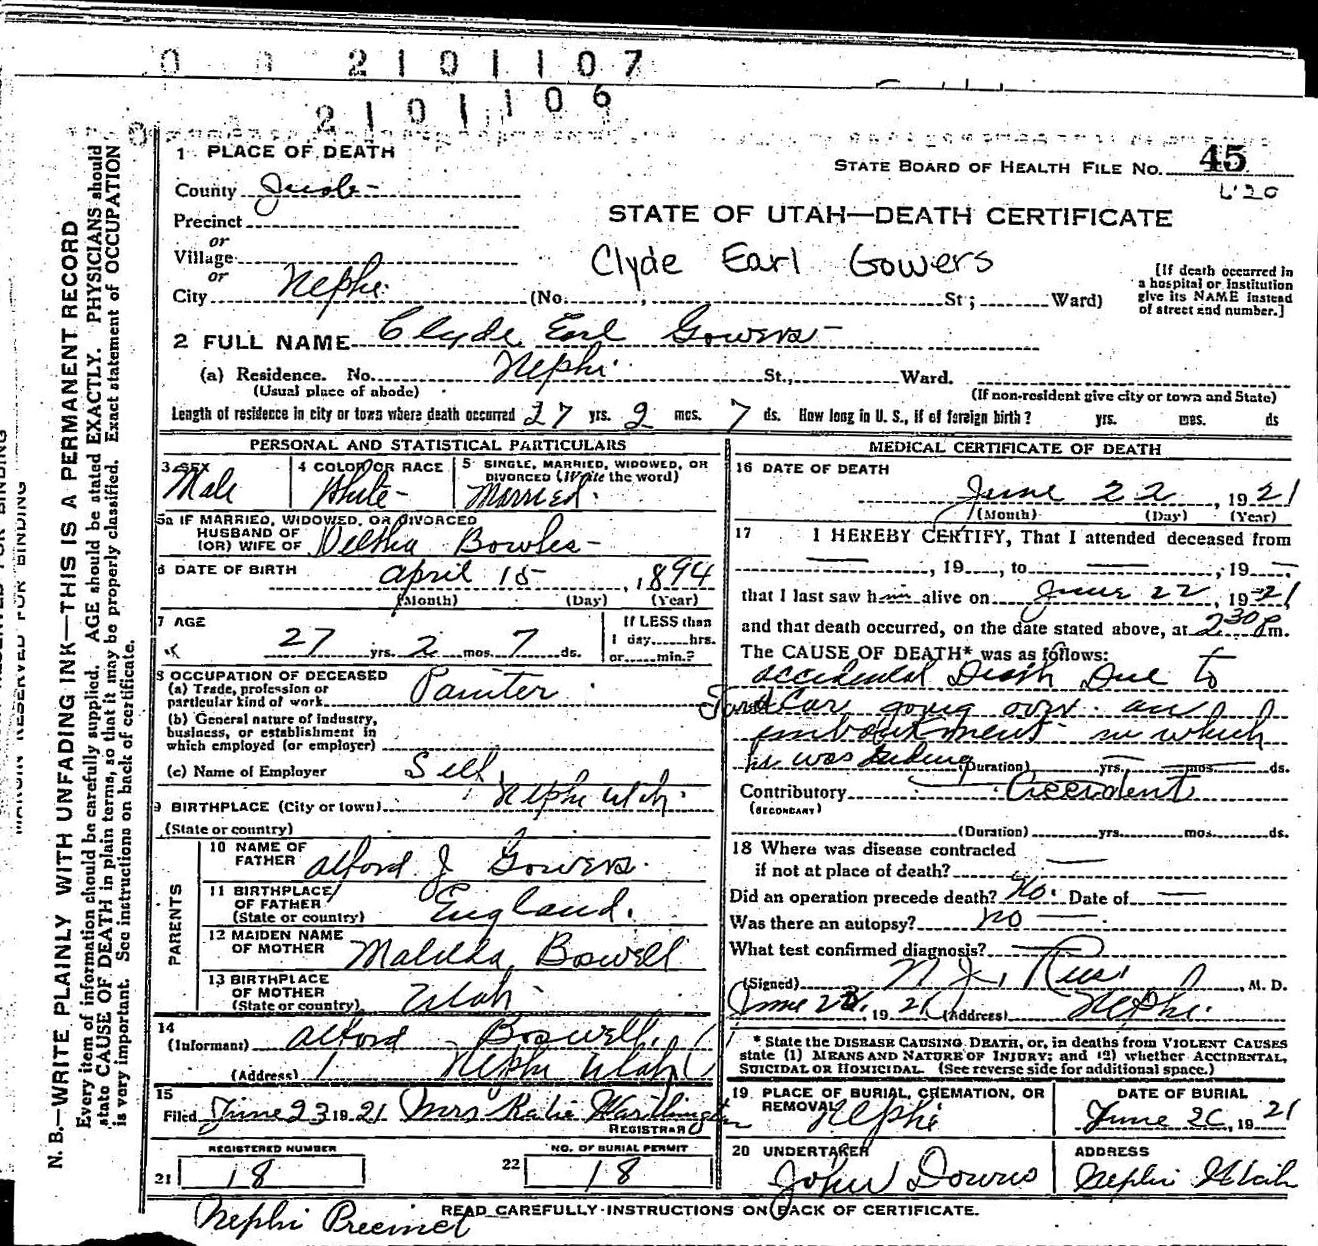 0 0 2101107
2101106
1 PLACE OF DEATH
STATE BOARD OF HEALTH FILE NO. 45
County Juab
Precinct
STATE OF UTAH—DEATH CERTIFICATE
or
Village
Clyde Earl Gowers
or
City Nephi (No. ; St; Ward)
[If death occurred in a hospital or institution give its NAME instead of street and number.]
2 FULL NAME Clyde Earl Gowers
(a) Residence. No. Nephi St., Ward.
(Usual place of abode) (If non-resident give city or town and State)
Length of residence in city or town where death occurred 27 yrs. 2 mos. 7 ds. How long in U. S., if of foreign birth? yrs. mos. ds
PERSONAL AND STATISTICAL PARTICULARS
3 SEX Male
4 COLOR OR RACE White
5 SINGLE, MARRIED, WIDOWED, OR DIVORCED (Write the word) Married.
5a IF MARRIED, WIDOWED, OR DIVORCED
HUSBAND OF
(OR) WIFE OF Bowles
6 DATE OF BIRTH April 15, 1894
(Month) (Day) (Year)
7 AGE 27 yrs. 2 mos. 7 ds.
If LESS than 1 day hrs. or min.?
8 OCCUPATION OF DECEASED
(a) Trade, profession or particular kind of work Painter
(b) General nature of Industry, business, or establishment in which employed (or employer)
(c) Name of Employer Self
9 BIRTHPLACE (City or town) Nephi Utah.
(State or country)
PARENTS
10 NAME OF FATHER Alford J Gowers.
11 BIRTHPLACE OF FATHER (State or country) England.
12 MAIDEN NAME OF MOTHER Matilda Boswell
13 BIRTHPLACE OF MOTHER (State or country) Utah
14
(Informant) Alford Boswell.
(Address) Nephi Utah
15
Filed June 23 1921 Mrs Katie
REGISTRAR
REGISTERED NUMBER NO. OF BURIAL PERMIT
21 18 22 18
MEDICAL CERTIFICATE OF DEATH
16 DATE OF DEATH
June 22, 1921
(Month) (Day) (Year)
17 I HEREBY CERTIFY, That I attended deceased from
—, 19 , to —, 19 —
that I last saw him alive on June 22, 1921
and that death occurred, on the date stated above, at 2 30 Pm.
The CAUSE OF DEATH* was as follows:
Accidental Death Due to
Ford Car going over an
embankment in which
he was riding (Duration) yrs. mos. ds.
Contributory Accident
(SECONDARY)
(Duration) yrs. mos. ds.
18 Where was disease contracted
if not at place of death? —
Did an operation precede death? No. Date of —
Was there an autopsy? no —.
What test confirmed diagnosis? —
(Signed) N. J. Rees, M. D.
, 1921 (Address) Nephi.
* State the DISEASE CAUSING DEATH, or, in deaths from VIOLENT CAUSES state (1) MEANS AND NATURE OF INJURY; and (2) whether ACCIDENTAL, SUICIDAL OR HOMICIDAL. (See reverse side for additional space.)
19 PLACE OF BURIAL, CREMATION, OR REMOVAL Nephi
DATE OF BURIAL
June 26, 1921
20 UNDERTAKER
John Downs
ADDRESS
Nephi Utah
READ CAREFULLY INSTRUCTIONS ON BACK OF CERTIFICATE.
Nephi Precinct
MARGIN RESERVED FOR BINDING
N. B.—WRITE PLAINLY WITH UNFADING INK—THIS IS A PERMANENT RECORD
Every item of information should be carefully supplied. AGE should be stated EXACTLY. PHYSICIANS should
state CAUSE OF DEATH in plain terms, so that it may be properly classified. Exact statement of OCCUPATION
is very important. See instructions on back of certificate.